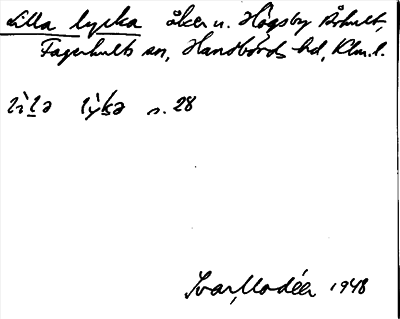 Lilla lycka åker u. Högsby Århult,
Fagerhults sn, Handbörds hd, Klm.l.
lìla lỳka s. 28
Ivar Modéer 1948